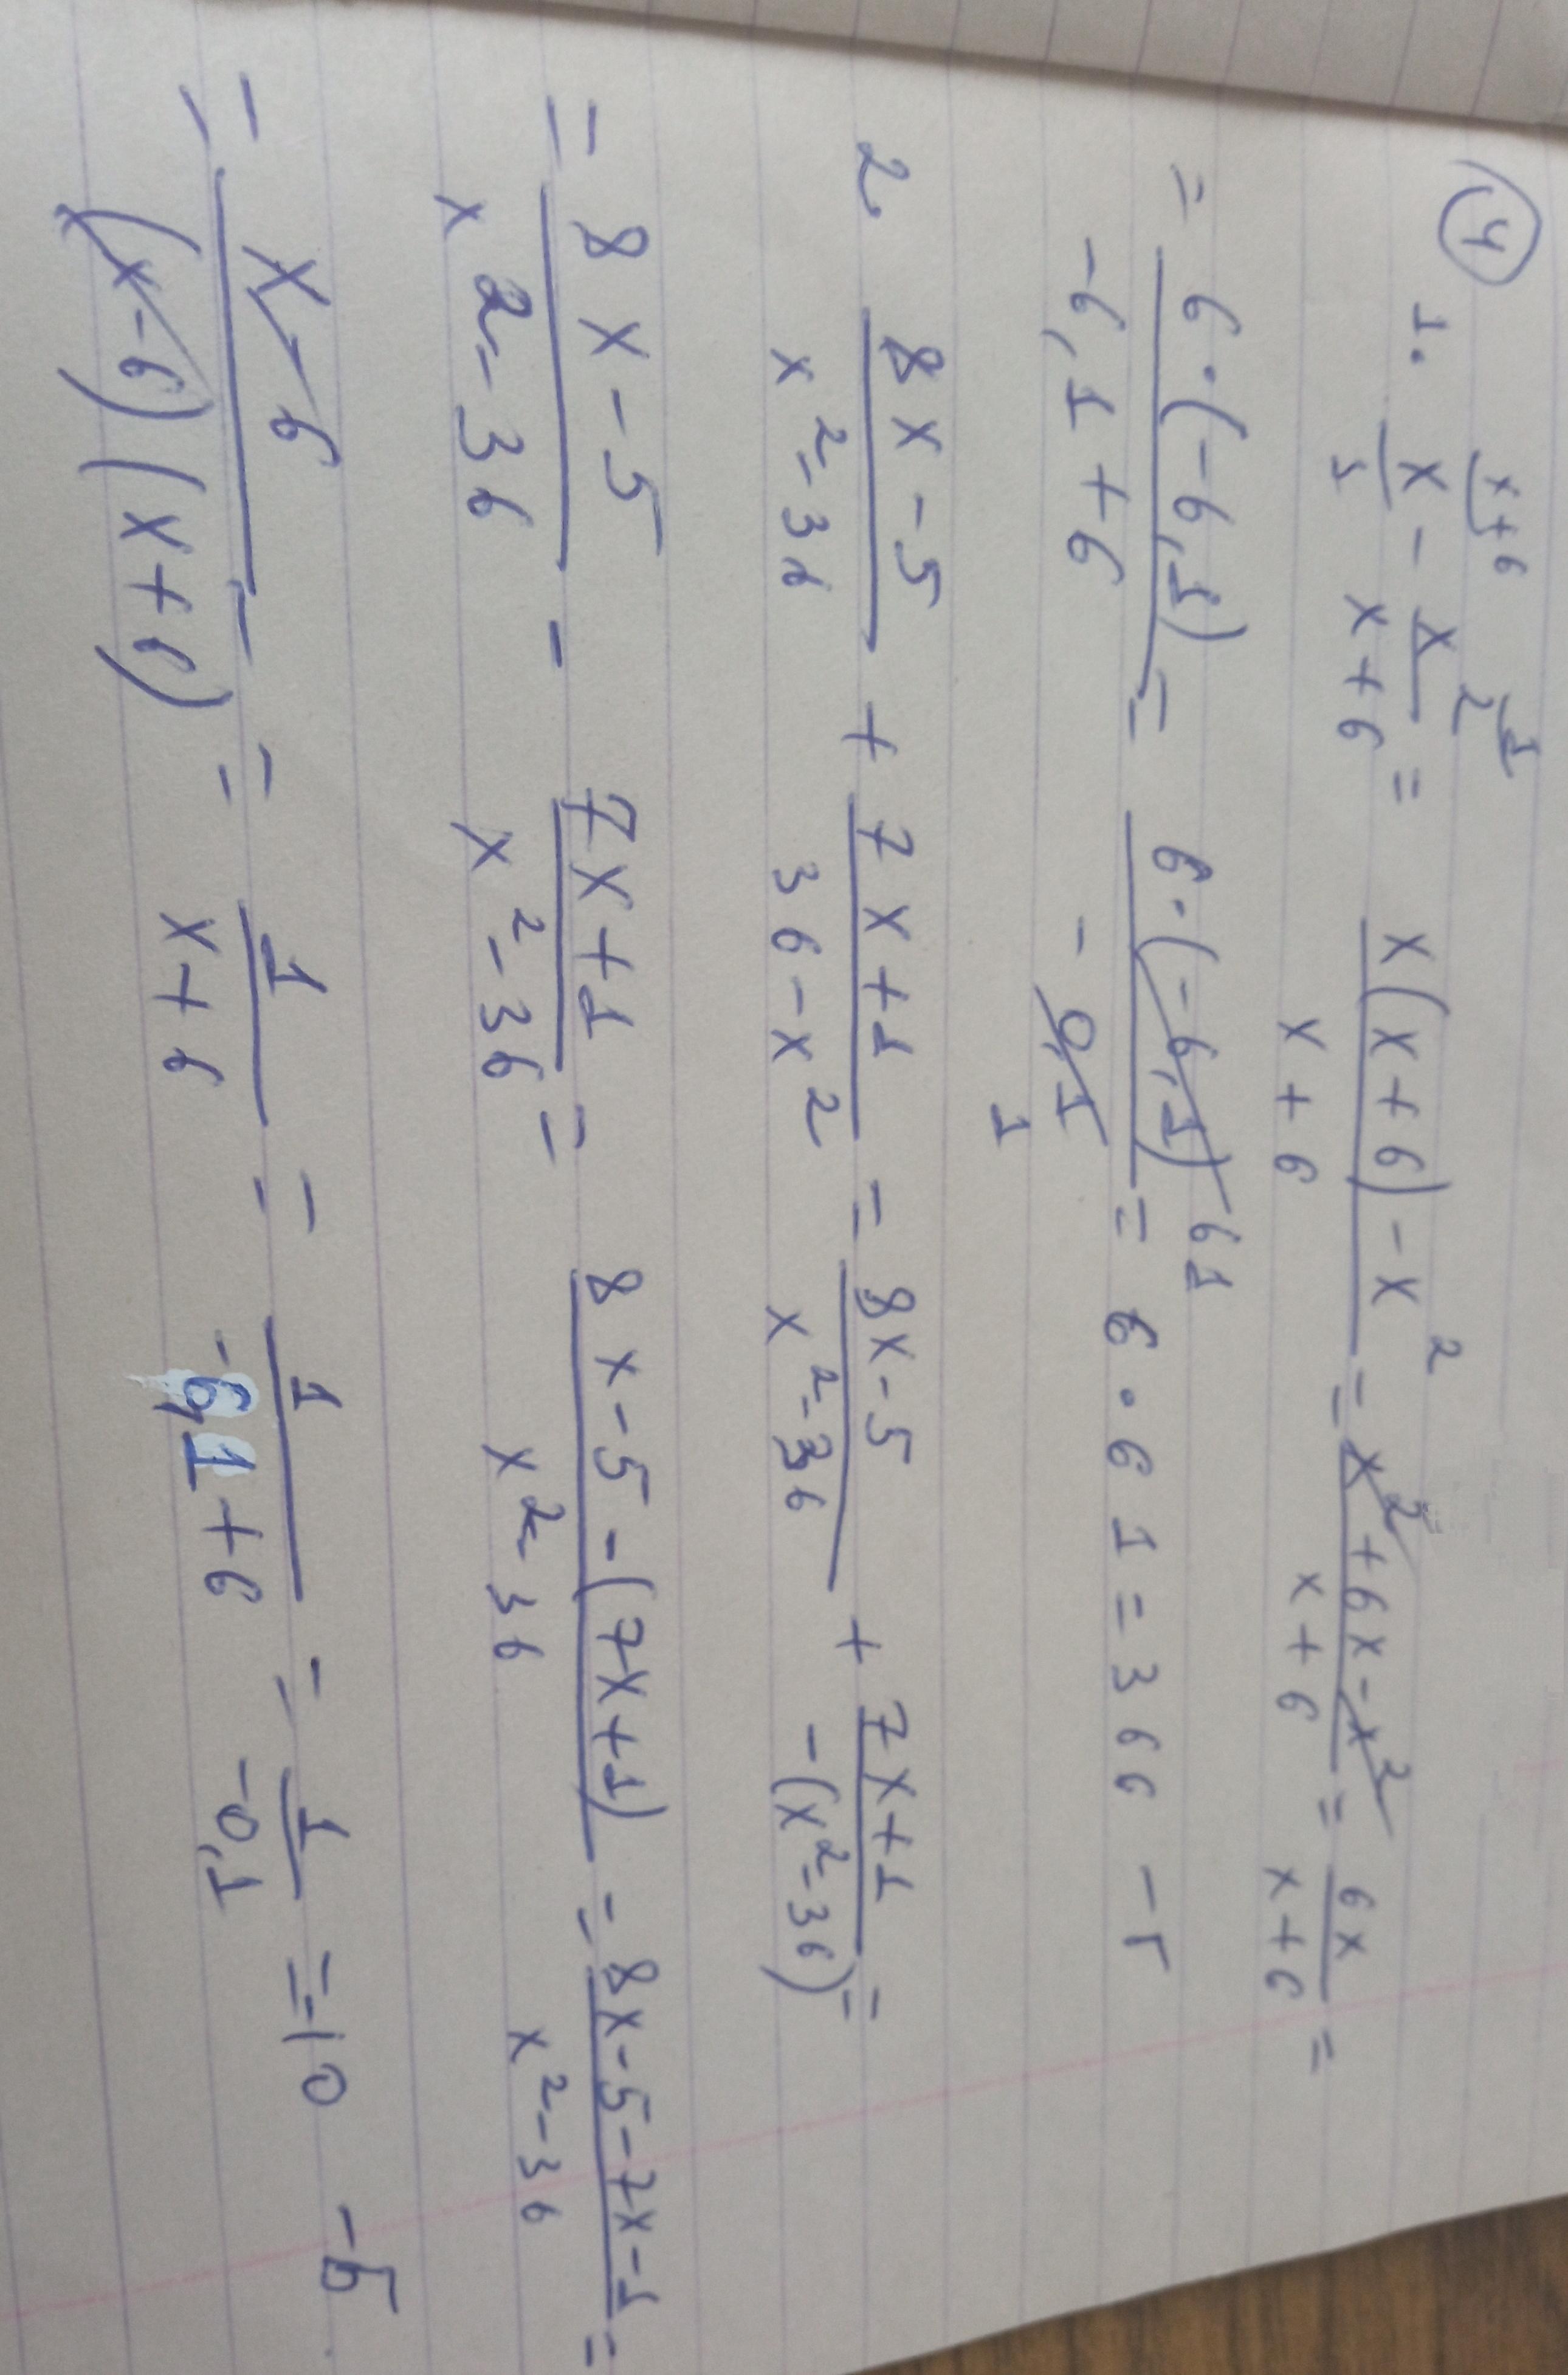 ④ 1. x/1 - x²/(x+6) = (x(x+6) - x²)/(x+6) = (x² + 6x - x²)/(x+6) = 6x/(x+6) =
= 6·(-6,1)/(-6,1+6) = 6·(-6,1)/(-0,1) = 6·61 = 366 -5
2. (8x-5)/(x²-36) + (7x+1)/(36-x²) = (8x-5)/(x²-36) + (7x+1)/(-(x²-36)) =
= (8x-5)/(x²-36) - (7x+1)/(x²-36) = (8x-5-(7x+1))/(x²-36) = (8x-5-7x-1)/(x²-36) =
= (x-6)/((x-6)(x+6)) = 1/(x+6) = 1/(-6,1+6) = 1/(-0,1) = -10 -5